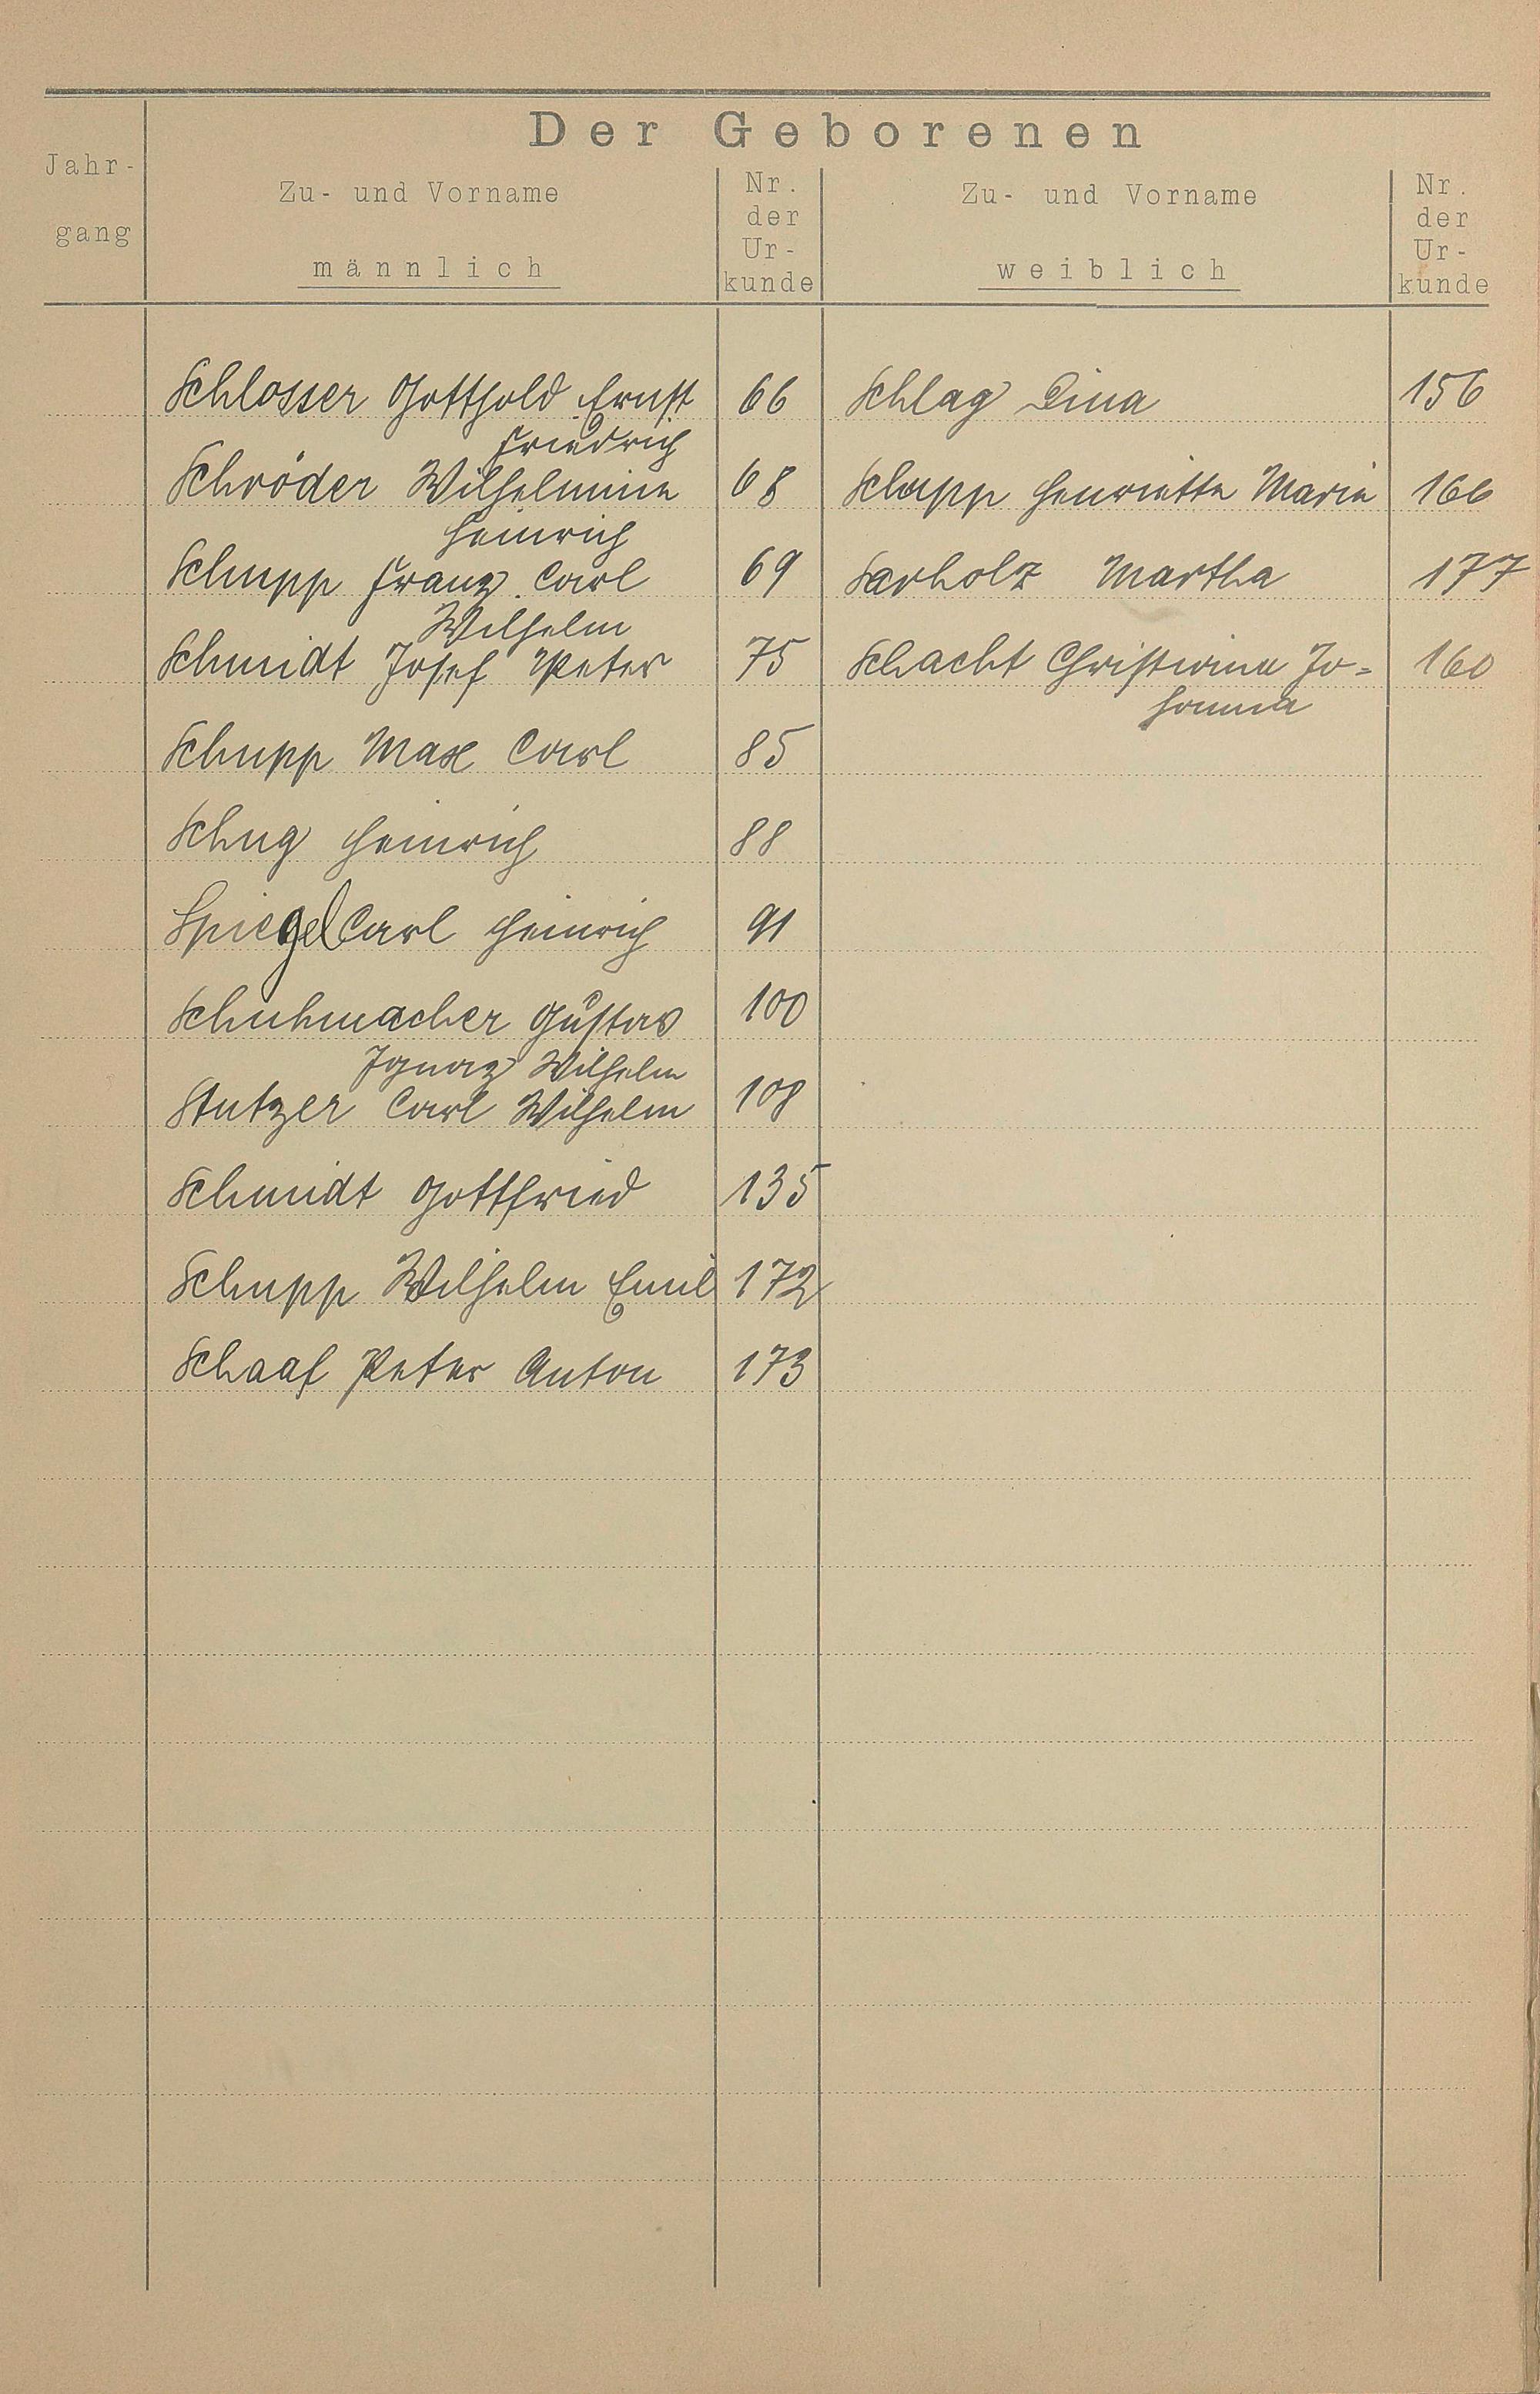 Der Geborenen
Jahr-
gang
Zu- und Vorname
männlich
Nr.
der
Ur-
kunde
Zu- und Vorname
weiblich
Nr.
der
Ur-
kunde
Schlosser Gotthold Ernst 66 Schlag Lina 156
Friedrich
Schröder Wilhelmine 68 Schupp Henriette Marie 166
Heinrich
Schupp Franz Carl 69 Sarholz Martha 177
Wilhelm
Schmidt Josef Peter 75 Schacht Christiane Jo= 160
hanna
Schupp Max Carl 85
Schug Heinrich 88
Spiegel Carl Heinrich 91
Schuhmacher Gustav 100
Ignaz Wilhelm
Stutzer Carl Wilhelm 108
Schmidt Gottfried 135
Schupp Wilhelm Emil 172
Schaaf Peter Anton 173